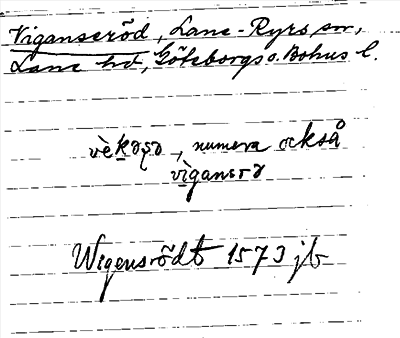 Viganseröd, Lane-Ryrs sn,
Lane hd, Göteborgs o. Bohus l.
numera också
vìgansrə
Wigensrödt 1573 jb